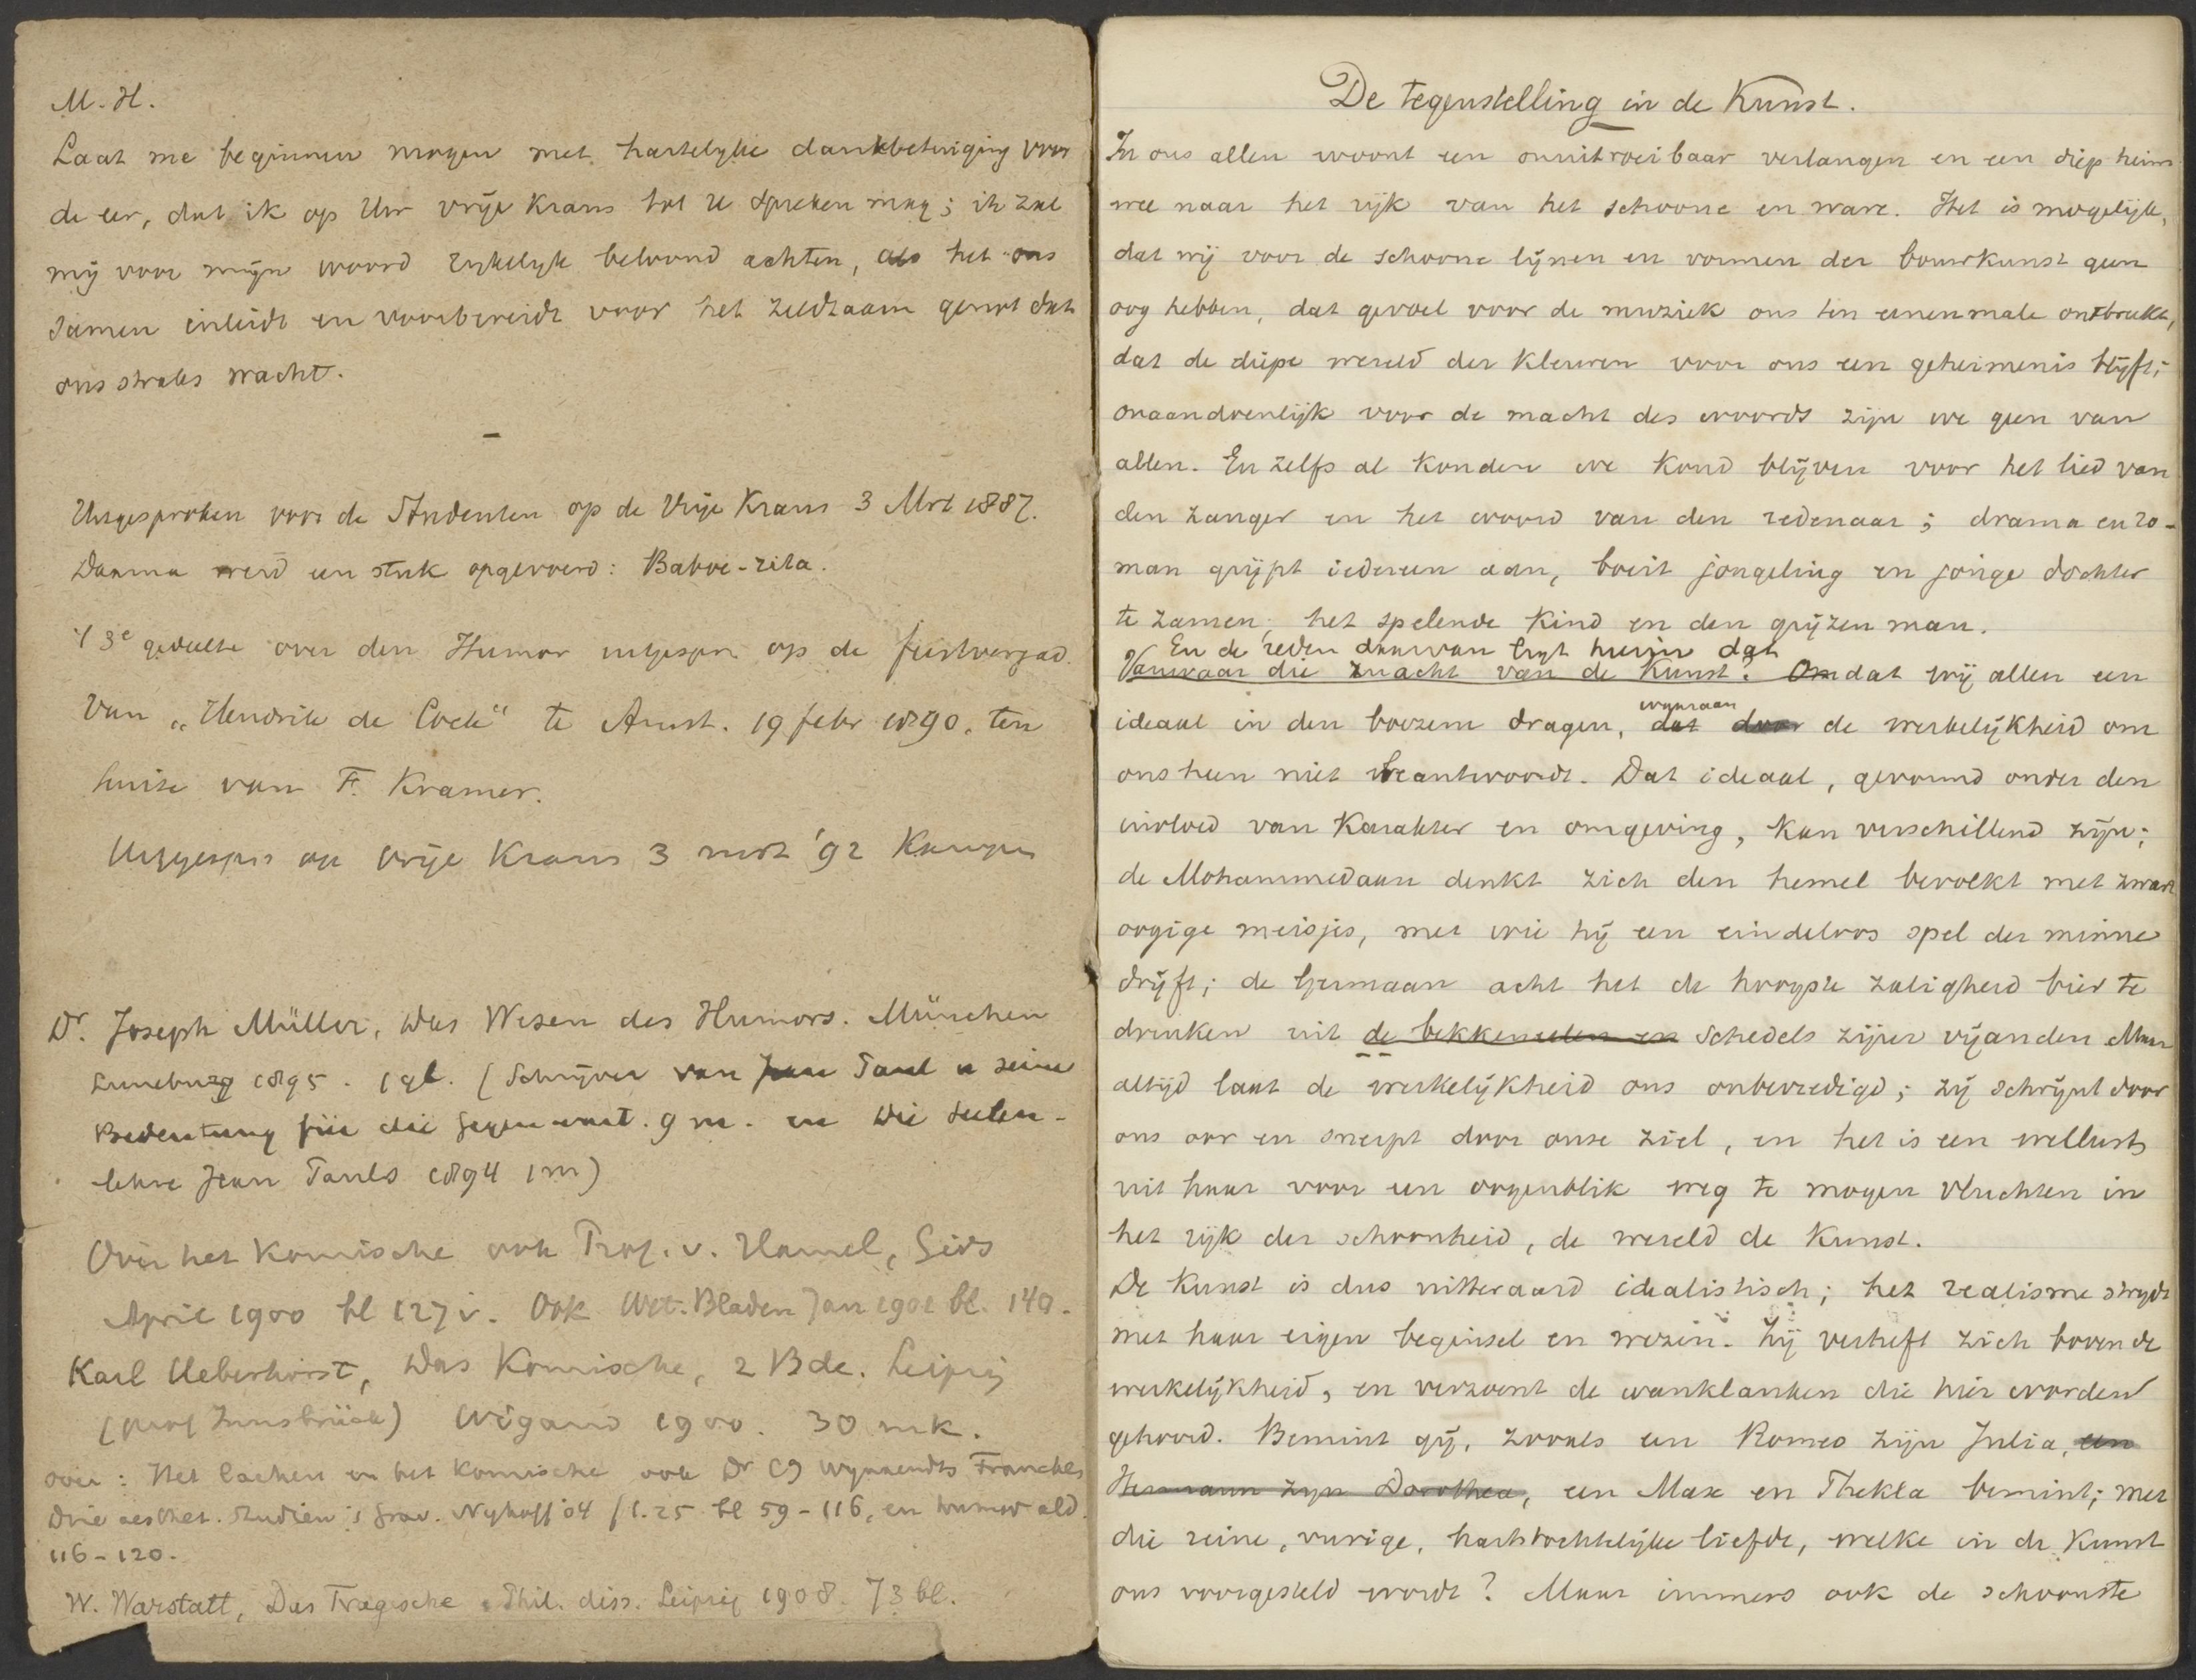 M. H.
Laat me beginnen mogen met hartelyke dankbetuiging voor
de eer, dat ik op Uw vrije Krans tot U spreken mag; ik zal
mij voor mijn woord rykelyk beloond achten, als het ons
samen inleidt en voorbereidt voor het zeldzaam genot dat
ons straks wacht.
–
Uitgesproken voor de Studenten op de Vrije Krans 3 Mrt 1887.
Daarna werd een stuk opgevoerd:
't 3e gedeelte over den Humor uitgespr. op de feestvergad.
van „Hendrik de Cock" te Amst. 19 febr 1890. ten
huize van F. Kramer.
Uitgespr. op vrije Krans 3 mrt '92 Kampen
Dr. Joseph Müller, Das Wesen des Humors. München
Luneburg 1895. (Schrijver van Jean Paul u seine
Bedeutung für die Gegenwart. 9 m. en Die Seelen-
lehre Jean Pauls 1894 1 m)
Over het Komische ook Prof. v. Hamel, Gids
April 1900 bl 127 v. Ook Wet. Bladen Jan 1901 bl. 140.
Karl Ueberhorst, Das Komische, 2 Bde. Leipzig
(prof Innsbrück) Wigand 1900. 30 mk.
over: Het lachen en het Komische ook Dr CJ Wynaendts Francken
Drie aesthet. Studien 's Grav. Nyhoff '04 f 1.25 bl 59-116, en humor ald.
116-120.
W. Warstatt, Das Tragische. Phil. diss. Leipzig 1908. 73 bl.
De tegenstelling in de Kunst.
In ons allen woont een onuitroeibaar verlangen en een diep heim-
wee naar het rijk van het schoone en ware. Het is mogelijk,
dat wij voor de schoone lijnen en vormen der bouwkunst geen
oog hebben, dat gevoel voor de muziek ons ten eenenmale ontbreekt,
dat de diepe wereld der kleuren voor ons een geheimenis blijft;
onaandoenlijk voor de macht des woords zijn we geen van
allen. En zelfs al konden we koud blijven voor het lied van
den zanger en het woord van den redenaar; drama en ro-
man grijpt iedereen aan, boeit jongeling en jonge dochter
te zamen, het spelende kind en den grijzen man.
En de reden daarvan ligt hierin dat
Vanwaar die macht van de Kunst? Omdat wij allen een
waaraan
ideaal in den boezem dragen, dat door de werkelijkheid om
ons heen niet beantwoordt. Dat ideaal, gevormd onder den
invloed van Karakter en omgeving, kan verschillend zijn;
de Mohammedaan denkt zich den hemel bevolkt met zwart
oogige meisjes, met wie hij een eindeloos spel der minne
drijft; de Germaan acht het de hoogste zaligheid bier te
drinken uit de bekkeneelen en schedels zijner vijanden Maar
altijd laat de werkelijkheid ons onbevredigd; zij schrijnt door
ons oor en snerpt door onze ziel, en het is een wellust,
uit haar voor een oogenblik weg te mogen vluchten in
het rijk der schoonheid, de wereld de Kunst.
De Kunst is dus uitteraard idealistisch; het realisme strijdt
met haar eigen beginsel en wezen. Zij verheft zich boven de
werkelijkheid, en verzoent de wanklanken die hier worden
gehoord. Bemint gij, zooals een Romeo zijn Julia, een
Hermann zijn Dorothea, een Max en Thekla bemint; met
die reine, vurige, hartstochtelijke liefde, welke in de Kunst
ons voorgesteld wordt? Maar immers ook de schoonste